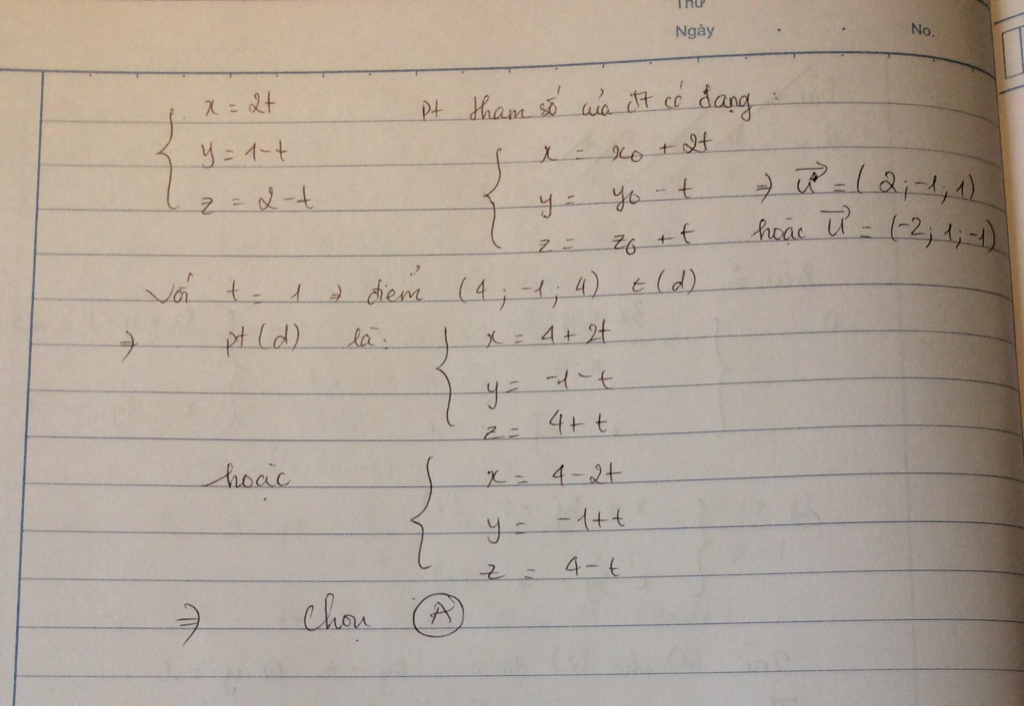 Thứ
Ngày . . No.
x = 2t pt tham số của đt có dạng :
y = 1-t x = x0 + 2t
z = 2-t y = y0 - t ⇒ u→ = (2;-1,1)
z = z0 + t hoặc u→ = (-2;1;-1)
Với t = 1 ⇒ điểm (4;-1;4) ∈ (d)
⇒ pt (d) là: x = 4+2t
y = -1-t
z = 4+t
hoặc x = 4-2t
y = -1+t
z = 4-t
⇒ Chọn A